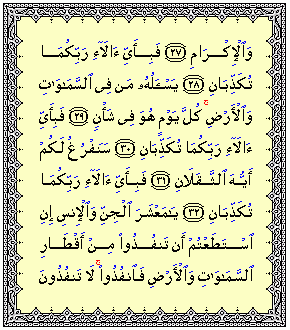 وَٱلْإِكْرَامِ ﴿٢٧﴾ فَبِأَيِّ ءَالَآءِ رَبِّكُمَا
تُكَذِّبَانِ ﴿٢٨﴾ يَسْـَٔلُهُۥ مَن فِى ٱلسَّمَـٰوَٰتِ
وَٱلْأَرْضِ ۚ كُلَّ يَوْمٍ هُوَ فِى شَأْنٍ ﴿٢٩﴾ فَبِأَيِّ
ءَالَآءِ رَبِّكُمَا تُكَذِّبَانِ ﴿٣٠﴾ سَنَفْرُغُ لَكُمْ
أَيُّهَ ٱلثَّقَلَانِ ﴿٣١﴾ فَبِأَيِّ ءَالَآءِ رَبِّكُمَا
تُكَذِّبَانِ ﴿٣٢﴾ يَـٰمَعْشَرَ ٱلْجِنِّ وَٱلْإِنسِ إِنِ
ٱسْتَطَعْتُمْ أَن تَنفُذُوا۟ مِنْ أَقْطَارِ
ٱلسَّمَـٰوَٰتِ وَٱلْأَرْضِ فَٱنفُذُوا۟ ۚ لَا تَنفُذُونَ